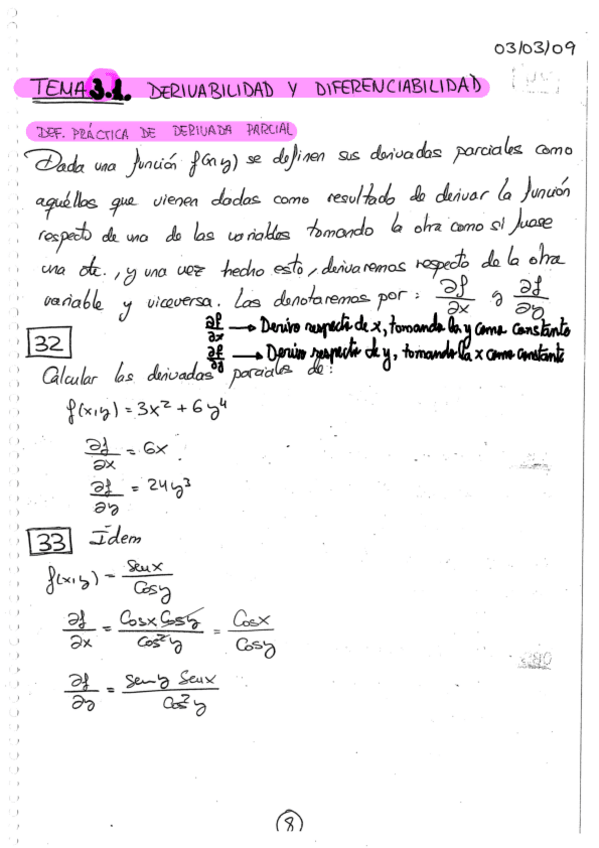 03/03/09
TEMA 3.1. DERIVABILIDAD Y DIFERENCIABILIDAD
DEF. PRÁCTICA DE DERIVADA PARCIAL
Dada una función f(x,y) se definen sus derivadas parciales como
aquéllas que vienen dadas como resultado de derivar la función
respecto de una de las variables tomando la otra como si fuase
una cte., y una vez hecho esto, derivaremos respecto de la otra
variable y viceversa. Las denotaremos por: ∂f/∂x y ∂f/∂y
∂f/∂x → Derivo respecto de x, tomando la y como constante
32
∂f/∂y → Derivo respecto de y, tomando la x como constante
Calcular las derivadas parciales de:
f(x,y) = 3x² + 6y⁴
∂f/∂x = 6x
∂f/∂y = 24y³
33 Idem
f(x,y) = Senx/Cosy
∂f/∂x = Cosx Cosy/Cos²y = Cosx/Cosy
∂f/∂y = Seny Senx/Cos²y
8